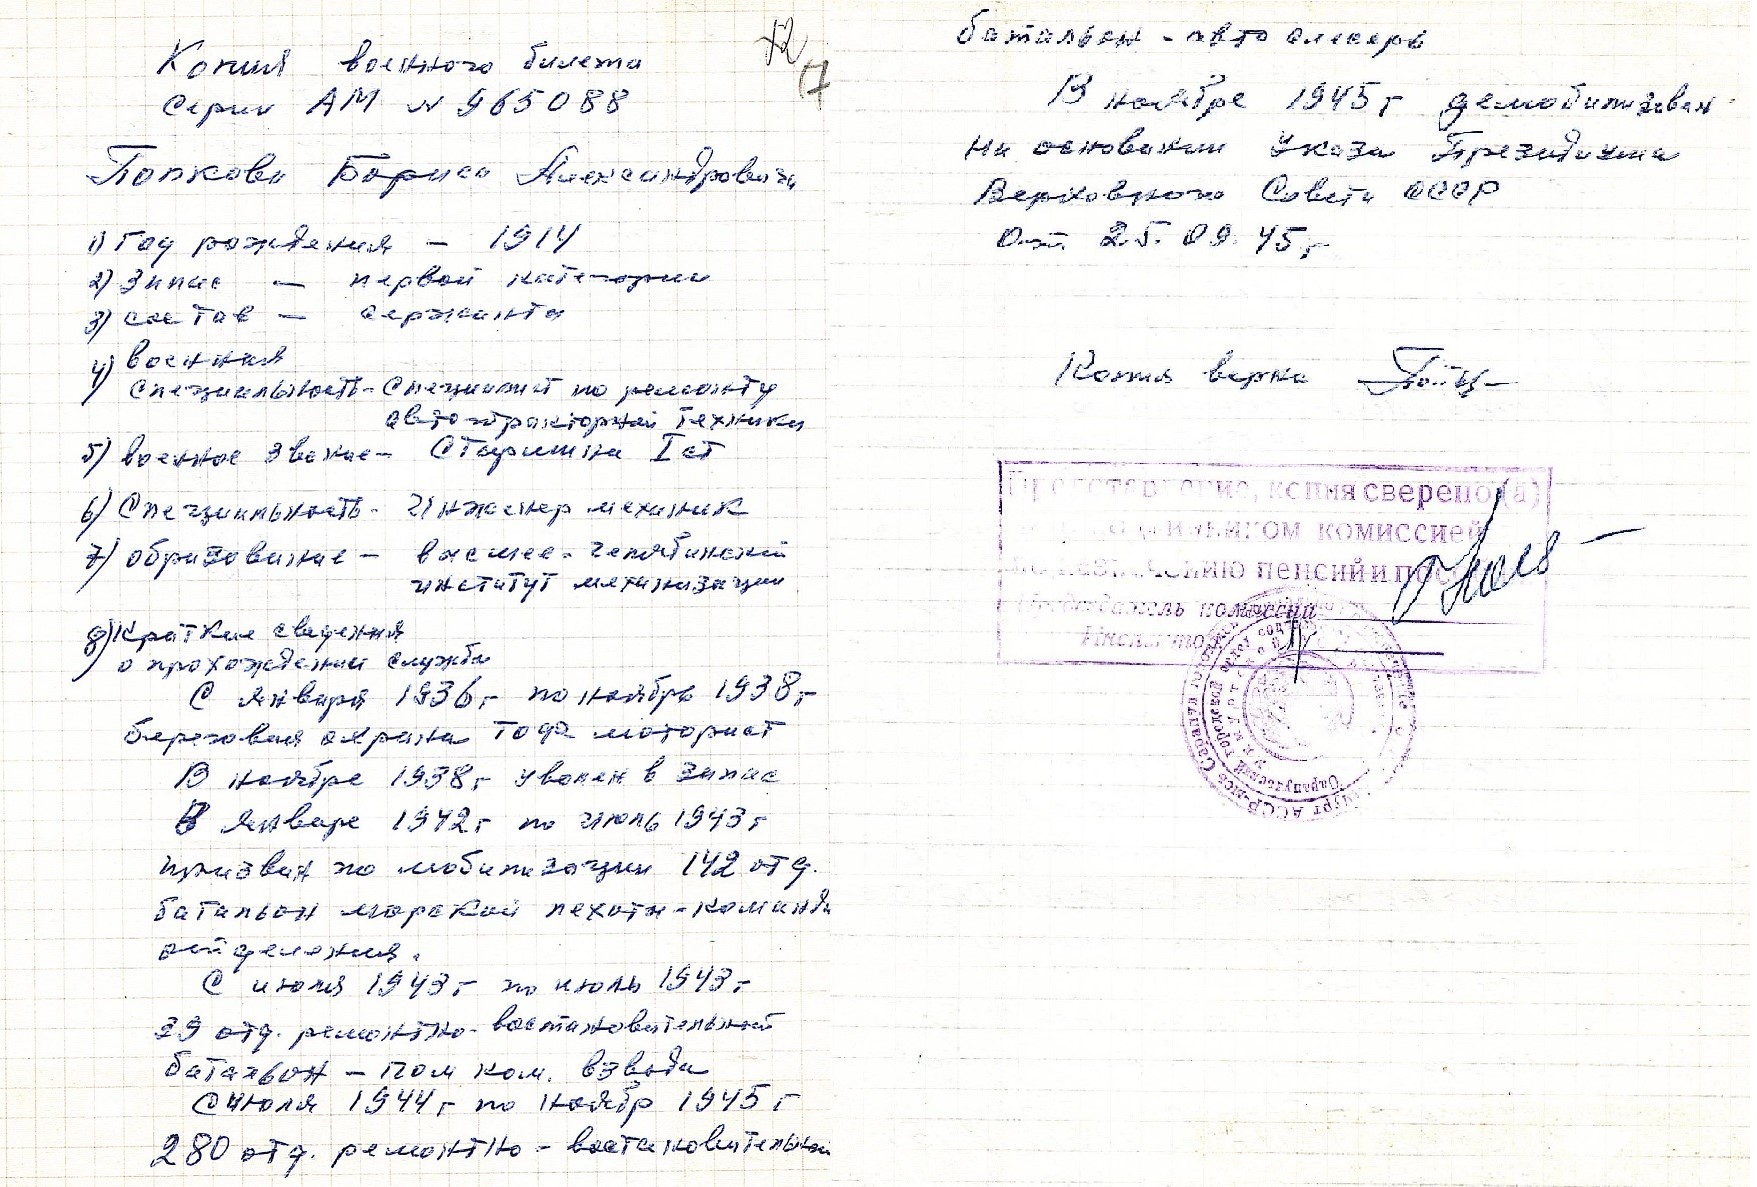 72
17
Копия военного билета
Серии АМ № 965088
Попкова Бориса Александровича
1) Год рождения – 1914
2) Запас – первой категории
3) состав – сержанта
4) военная
специальность – Специалист по ремонту
автотракторной техники
5) военное звание – Старшина I ст
6) Специальность – Инженер механик
7) образование – высшее – Челябинский
институт механизации
8) Краткие сведения
о прохождении службы
С января 1936г по ноябрь 1938г
береговая охрана моторист
В ноябре 1938г уволен в запас
В январе 1942г по июль 1943г
призван по мобилизации 142 отд.
батальон морской пехоты – команди
отделения.
С июля 1943г по июль 1943г
29 отд. ремонтно – востановительный
батальон – Пом ком. взвода
С июля 1944г по ноябр 1945г
280 отд. ремонтно – востановительный
батальон – авто слесарь
В ноябре 1945г демобилизован
на основании Указа Президиума
Верховного Совета СССР
От 25.09.45г
Копия верна
копия сверено (а)
комиссией
пенсий и
Председатель комиссии